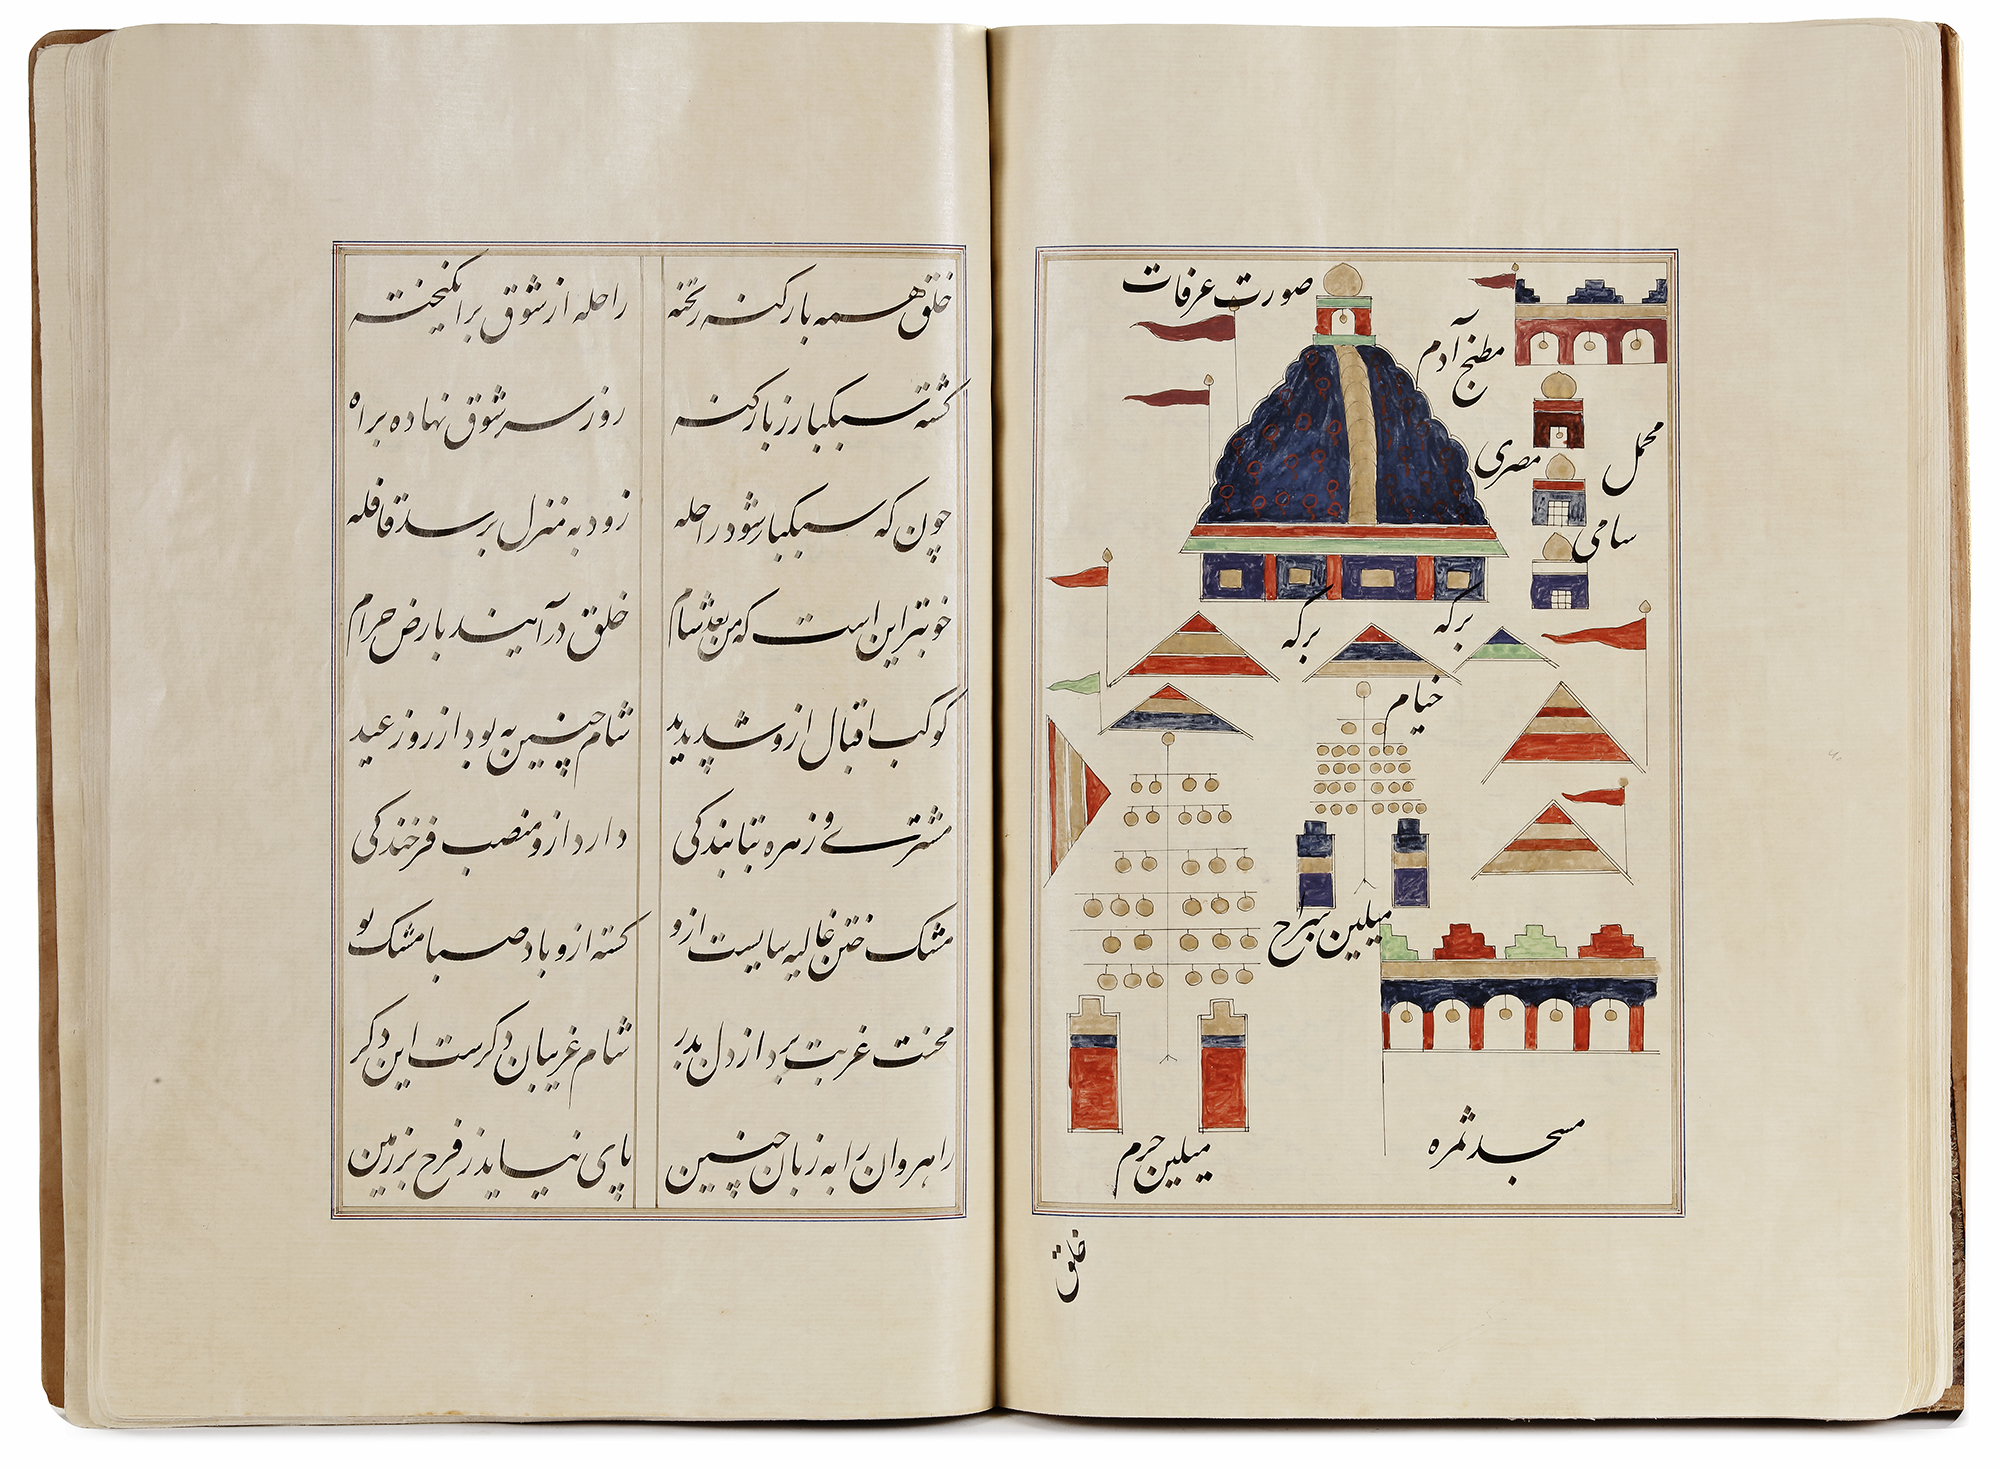 صورت عرفات
مطبخ آدم
محمل
مصری
سامی
برکه
برکه
خیام
میلین سراح
مسجد ثمره
میلین حرم
خلق
خلق همه بار کنه ریخته راحله از شوق برانکیخته
کشته سبکبار ز بار کنه روز سر شوق نهاده براه
چون که سبکبار شود راحله زود به منزل برسد قافله
خوبتر این است که من بعد شام خلق در آیند بارض حرام
کوکب اقبال ازو شد پدید شام چنین به بود از روز عید
مشتری و زهره بتابندکی دارد ازو منصب فرخندکی
مشک ختن غالیه سایست ازو کشته ازو باد صبا مشک بو
محنت غربت برد از دل بدر شام غریبان دکرست این دکر
راهروان را به زبان چنین پای نیاید ز فرح بر زمین